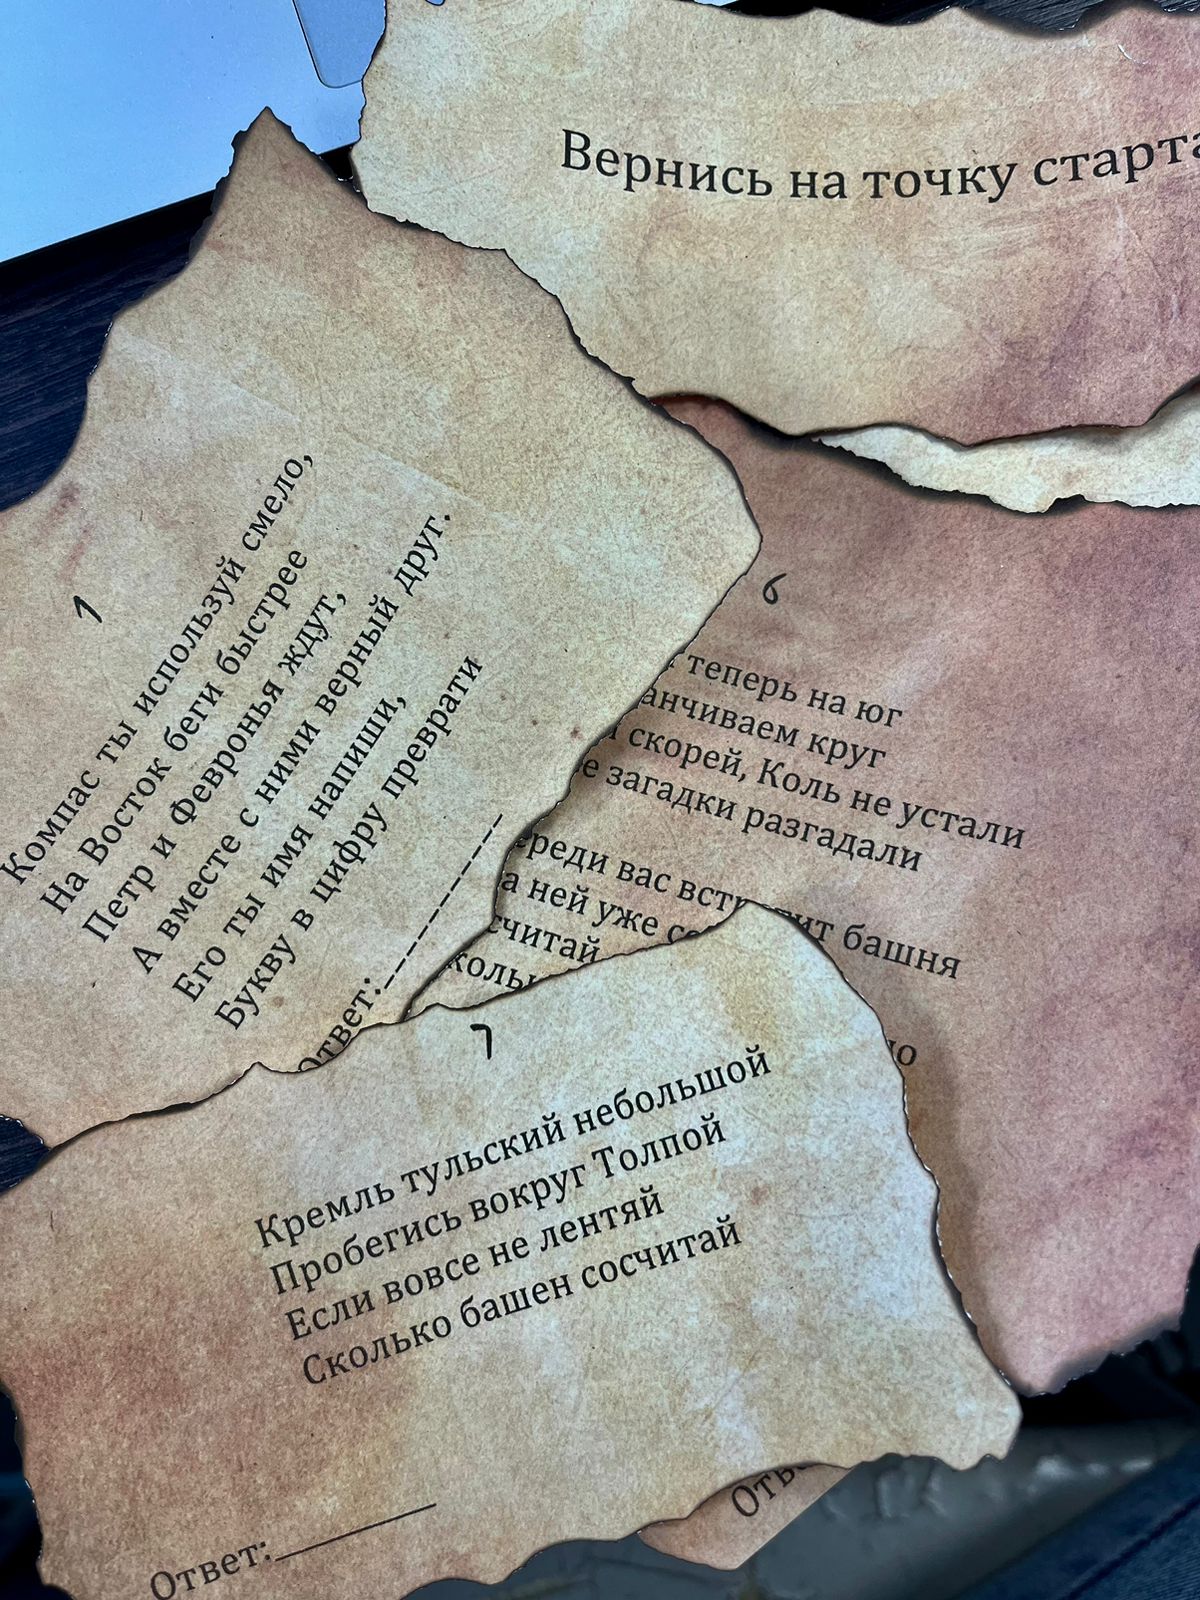 Вернись на точку старта
1
Компас ты используй смело,
На Восток беги быстрее
Петр и Февронья ждут,
А вместе с ними верный друг.
Его ты имя напиши,
Букву в цифру преврати
Ответ:_________
6
теперь на юг
анчиваем круг
скорей, Коль не устали
е загадки разгадали
реди вас встретит башня
а ней уже
считай
коль
но
7
Кремль тульский небольшой
Пробегись вокруг Толпой
Если вовсе не лентяй
Сколько башен сосчитай
Ответ:________
Отв